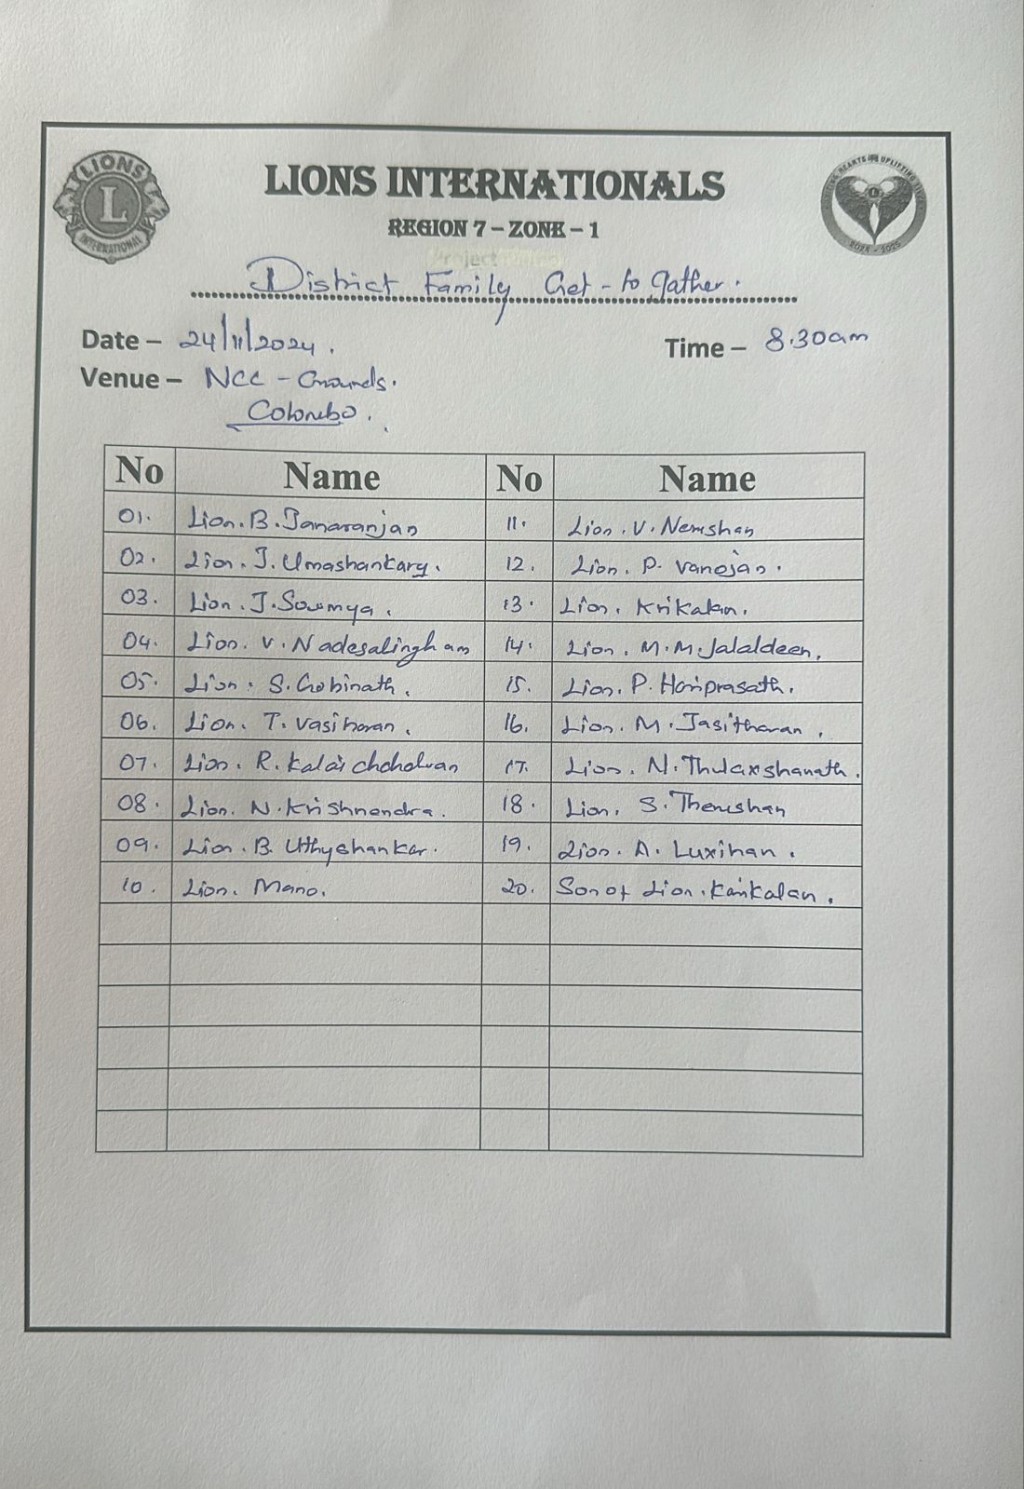 LIONS INTERNATIONAL
LIONS INTERNATIONALS
REGION 7 – ZONE – 1
HEARTS UPLIFTING
2024 - 2025
Project
District Family Get-to gather.
Date – 24/11/2024.
Time – 8.30am
Venue – NCC - Grounds.
Colombo.
No Name No Name
01. Lion. B. Janaranjan 11. Lion. V. Nerushan
02. Lion. J. Umashankary. 12. Lion. P. Vanojan.
03. Lion. J. Sowmya. 13. Lion. Krikalan.
04. Lion. V. Nadesalingham 14. Lion. M.M. Jalaldeen.
05. Lion. S. Gobinath. 15. Lion. P. Hariprasath.
06. Lion. T. Vasiharan. 16. Lion. M. Jasitharan.
07. Lion. R. 17. Lion. N. Thulaxshanath.
08. Lion. N. Krishnendra. 18. Lion. S. Thenushan
09. Lion. B. Uthyshankar. 19. Lion. A. Luxihan.
10. Lion. Mano. 20. Son of Lion.